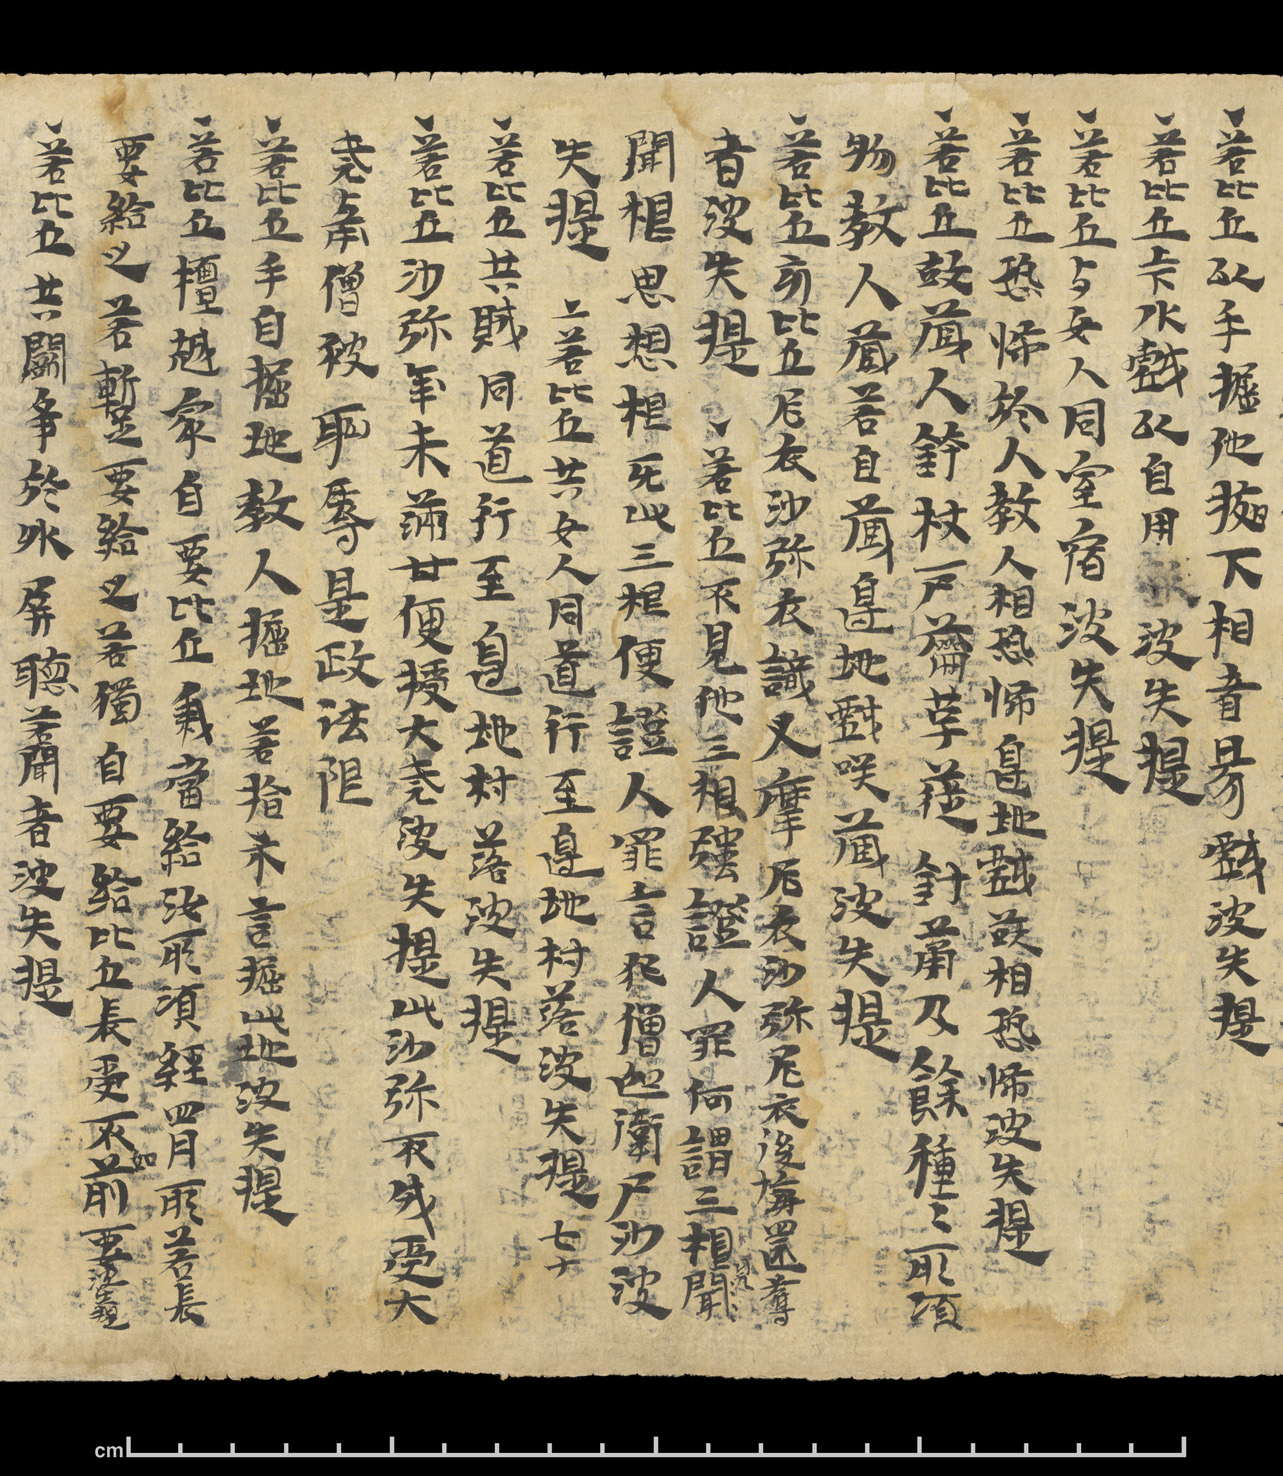 若比丘以手攊他掖下相音㫄戲波失提
若比丘上下水戲以自用波失提
若比丘与女人同室宿波失提
若比丘恐怖於人教人相恐怖邊地戲𥬇相恐怖波失提
若比丘鼓蔵人鉢杖尸蘥草蓰針筩及餘種〻所須
物教人蔵若自蔵邊地戲咲蔵波失提
若比丘取比丘尼衣沙弥衣識叉摩尼衣沙弥尼衣後悔還奪
者波失提 若比丘不見他三根强證人罪何謂三根聞
聞根思想根死此三根便證人罪言犯僧迦衛尸沙波
失提 若比丘共女人同道行至邊地村落波失提 七十
若比丘共賊同道行至邊地村落波失提
若比丘沙弥年未滿廿便授大尧波失提此沙弥不成受大
尧与甯僧被恥辱是政法限
若比丘手自掘地教人掘地若指未言掘此地波失提
若比丘檀越家自要比丘剩當給汝所須經四月所若長
要給之若暫要給之若獨自要給比丘長受不如前要波義
若比丘共鬪爭於水屏聽若聞者波失提